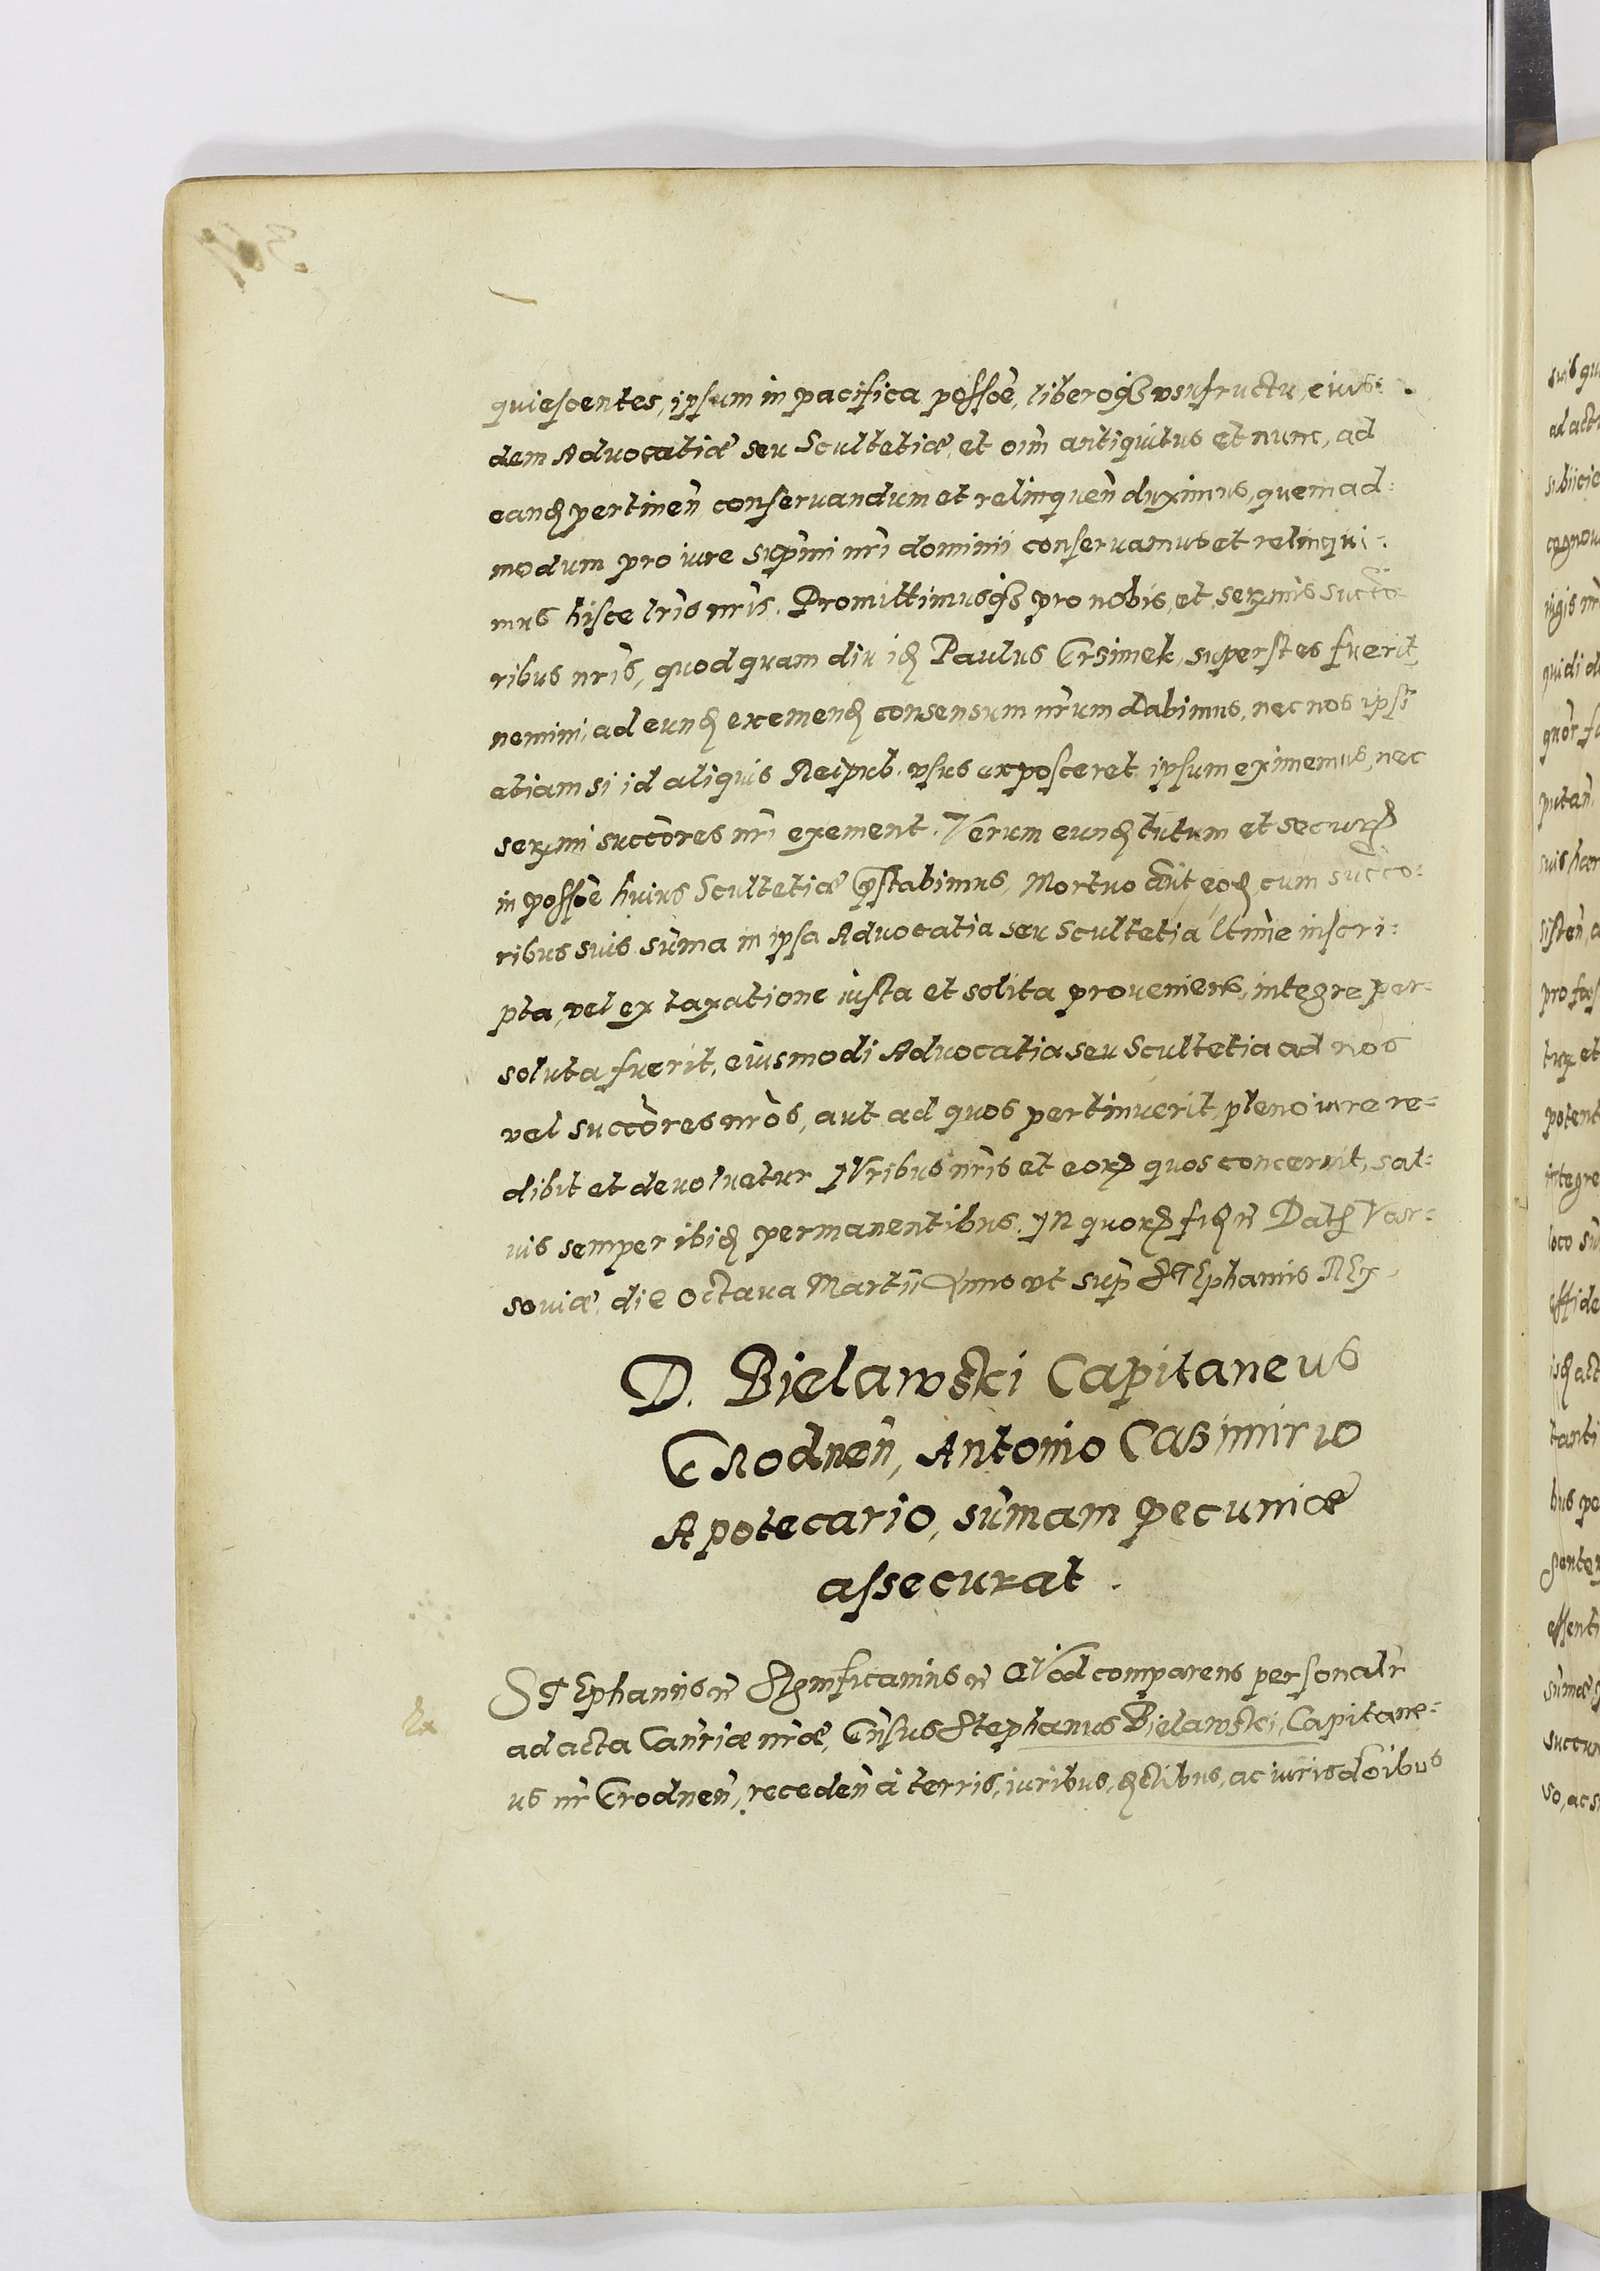 quiescentes, ipsum in pacifica possẽe, liberoq3 vsufructu, eius:
dem Advocatiæ seu Scultetiæ, et oim̃ antiquitus et nunc, ad
eand pertineñ conseruandum et relinqueñ duximus, quemad:
modum pro iure sup̃mi nr̃i dominii conseruamus et relinqui:
mus hisce lr̃is nr̃is. Promittimusq3 pro nobis, et serm̃is succo:
ribus nr̃is, quod quam diu id Paulus Crsimek, superstes fuerit,
nemini, ad eund exemend consensum nr̃um dabimus, nec nos ipsi
etiam si id aliquis Reipub. vsus exposceret ipsum eximemus, nec
serm̃i succõres nr̃i exement. Verum eund tutum et securũ
in possẽe huius Scultetiæ p̃stabimus, Mortuo aũt eod, cum succo:
ribus suis sum̃a in ipsa Advocatia seu Scultetia ltim̃e inscri:
pta, vel ex taxatione iusta et solita proueniens, integre per:
soluta fuerit, eiusmodi Advocatia seu Scultetia ad nos
vel succõres nr̃os, aut ad quos pertinuerit, pleno iure re=
dibit et deuoluetur IVribus nr̃is et eorũ quos concernit, sal:
uis semper ibid permanentibus. IN quorũ fid r̃ Dat Var:
soviæ, die octaua Martij Anno vt sup̃ STEphanus REx.
D. Bielawski Capitaneus
GRodneñ, Antonio Casimirio
Apotecario, sum̃am pecuniæ
assecurat.
STEphanus r̃ SIgnificamus r̃ QVod comparens personalr̃
Ex
ad acta Canr̃iæ nr̃æ, Gñsus Stephanus Bielawski, Capitane:
us nr̃ Grodneñ, recedeñ à terris, iuribus, dctibus, ac iurisdõibus